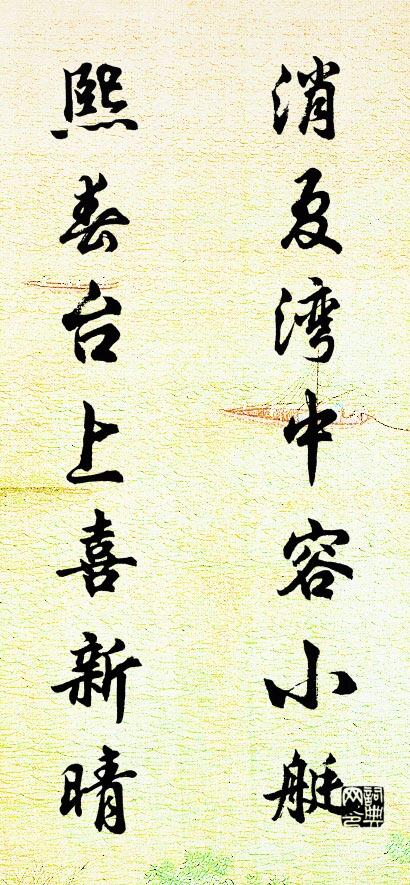 消夏湾中容小艇
熙春台上喜新晴